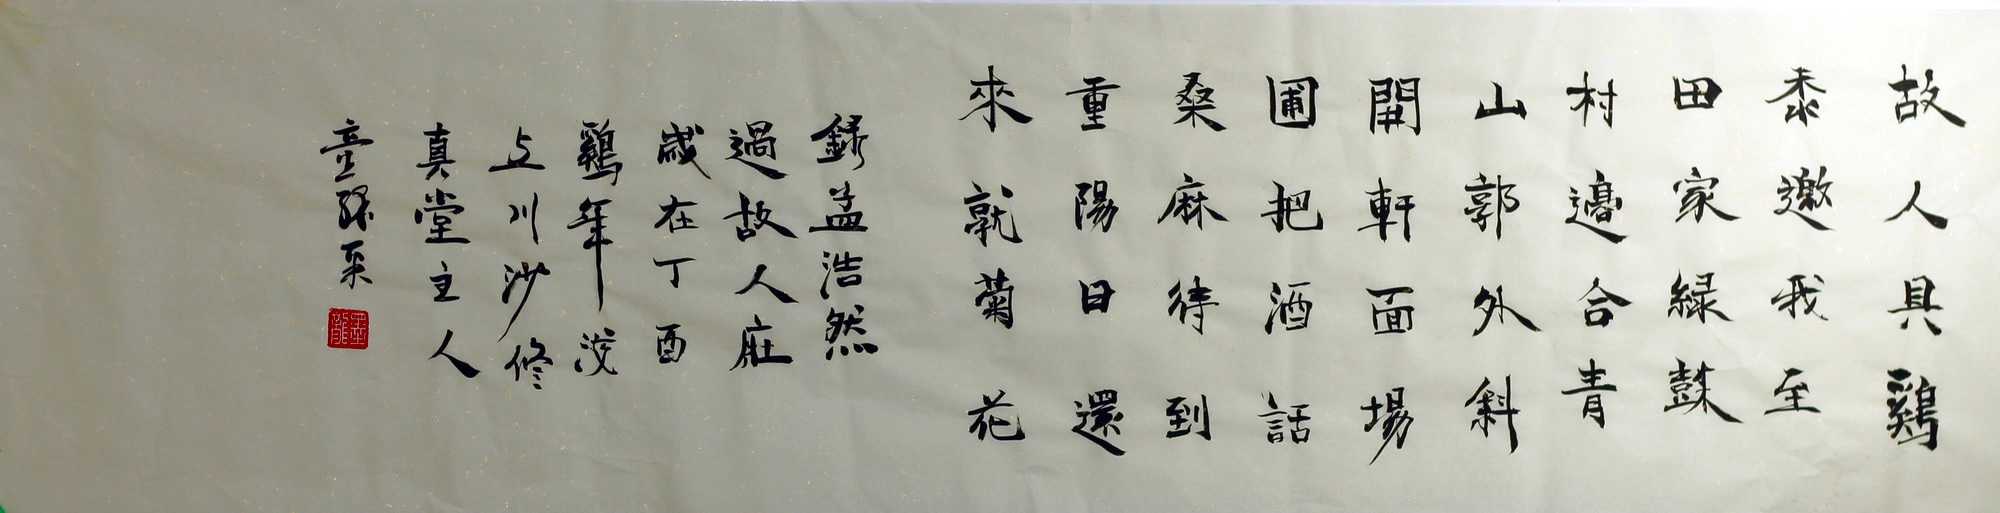 故人具鷄
黍邀我至
田家緑
村邊合青
山郭外斜
開軒面場
圃把酒話
桑麻待到
重陽日還
來就菊花
録孟浩然
過故人庄
歲在丁酉
鷄年
川沙修
真堂主人